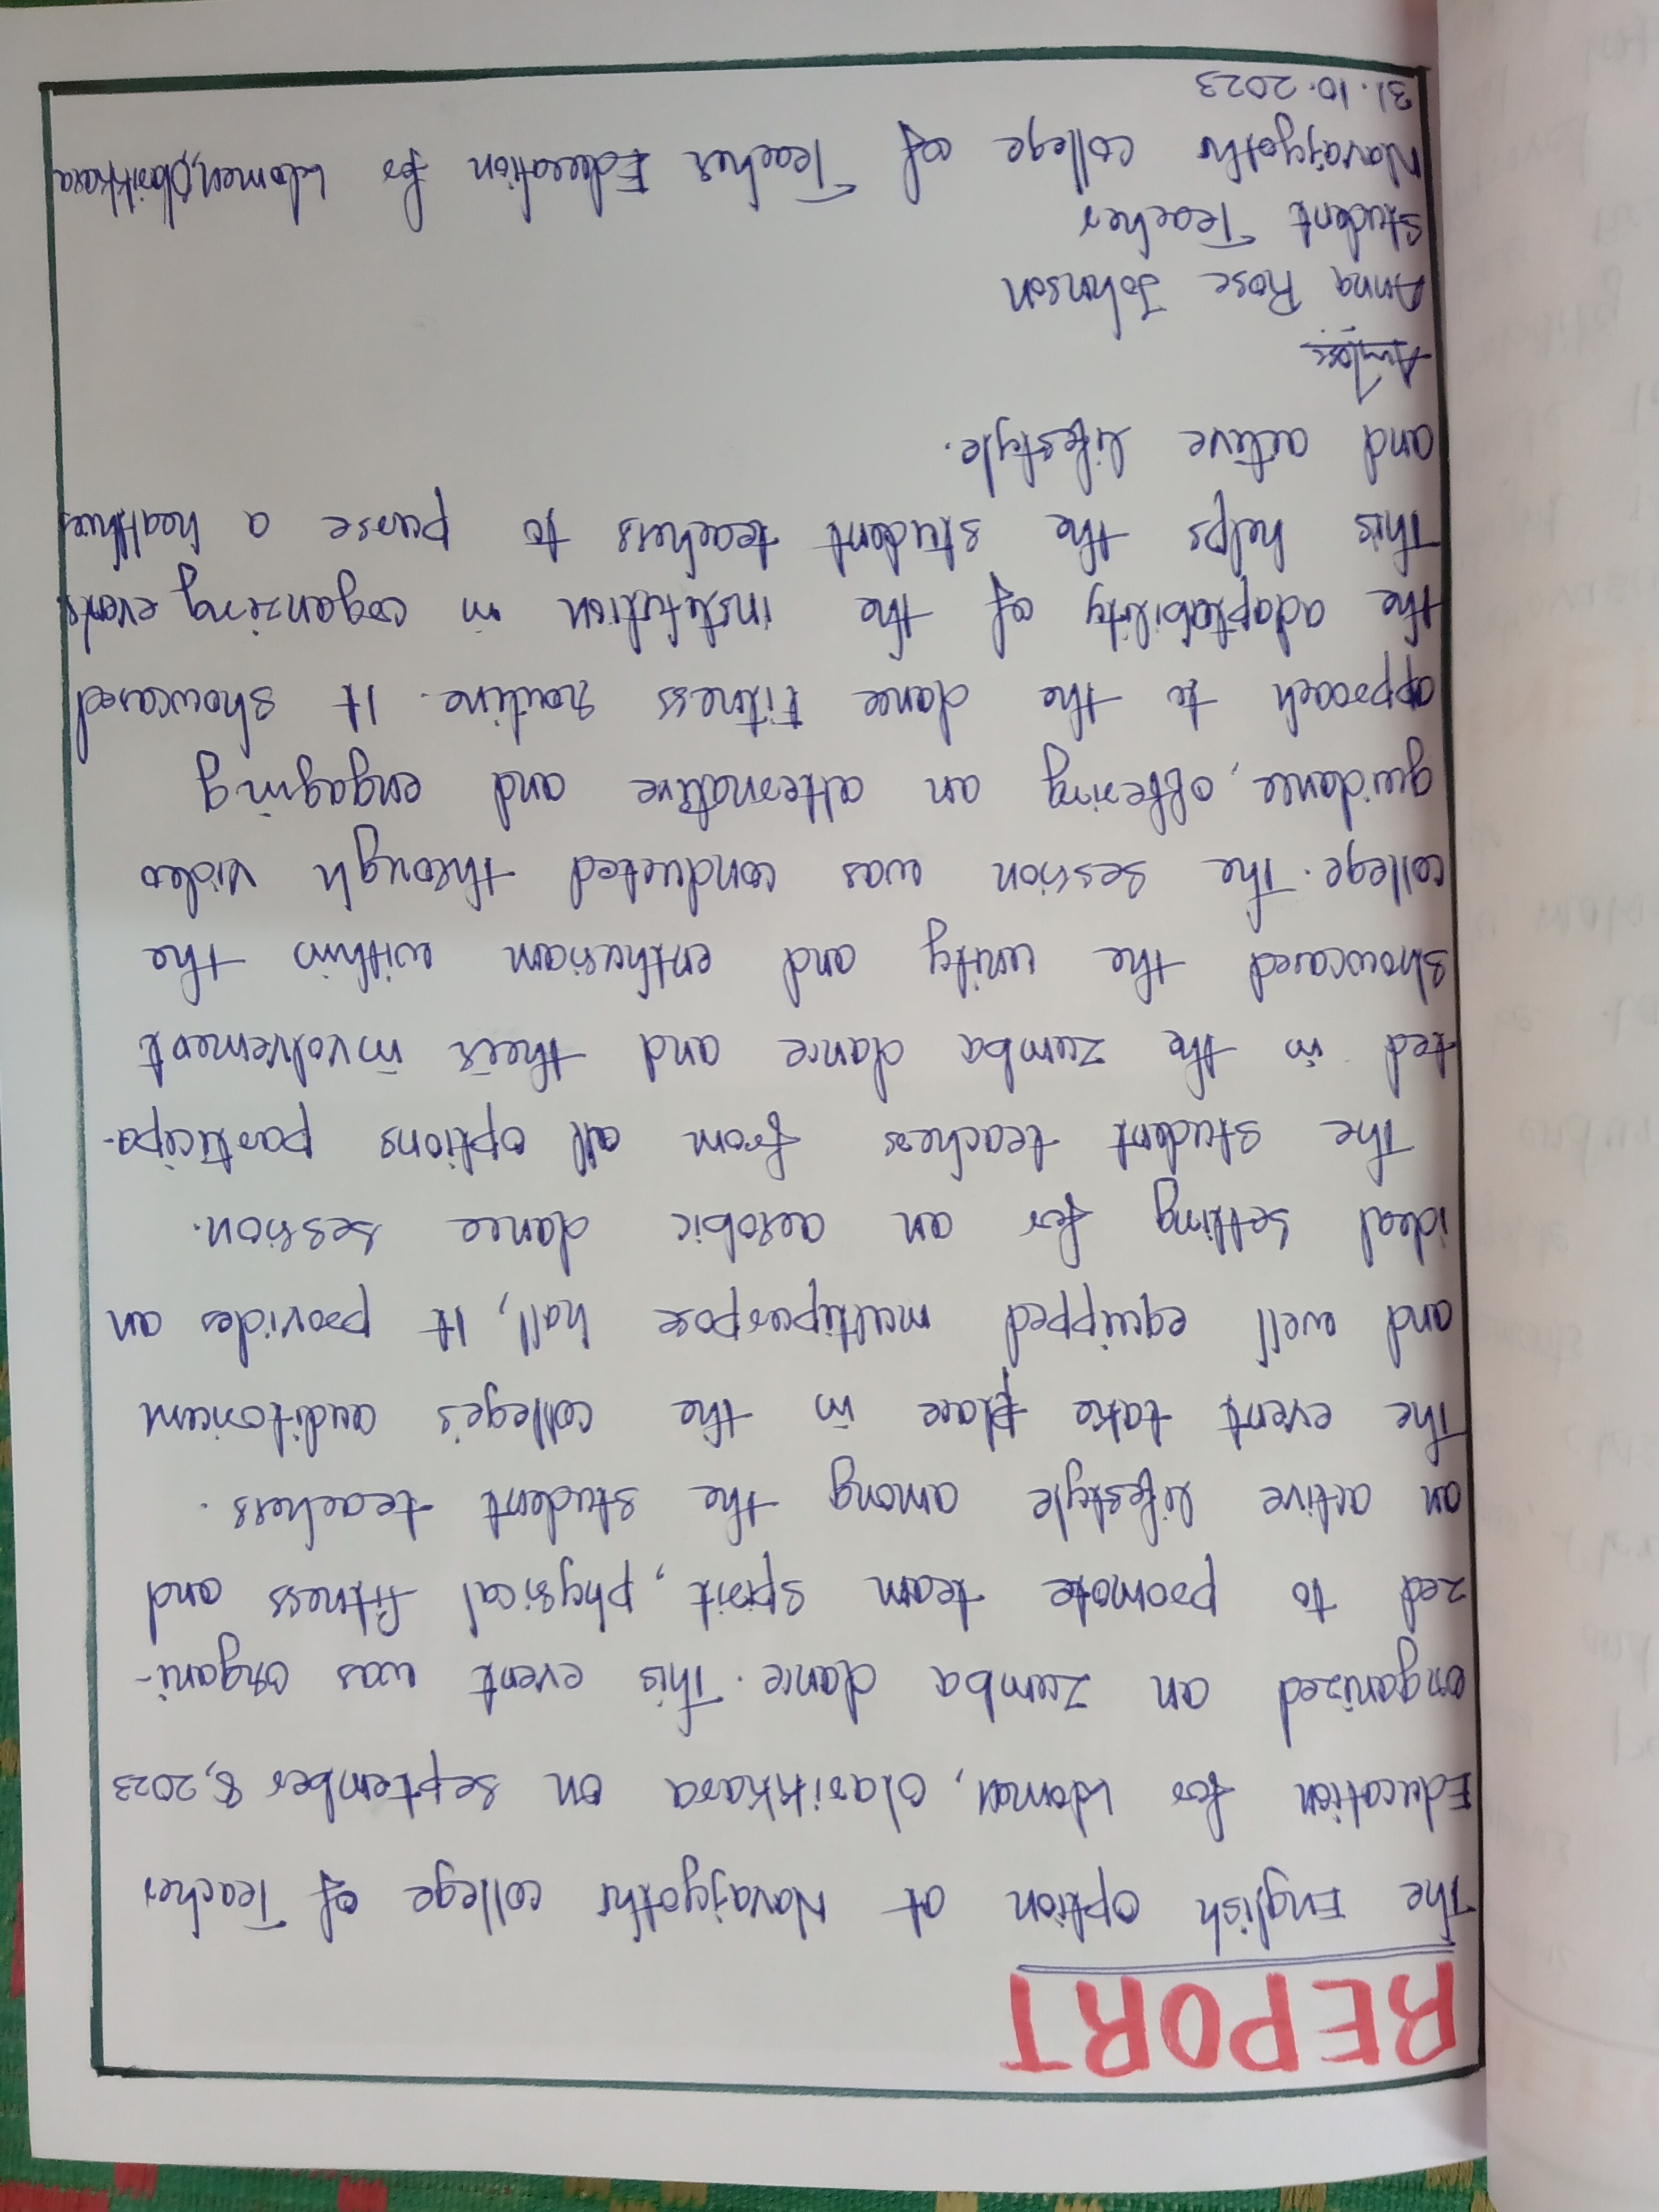 REPORT
The English option at Navajyothi college of Teacher
Education for Women, Olarikkara on september 8, 2023
organized an zumba dance. This event was organi-
zed to promote team spirit, physical fitness and
an active lifestyle among the student teachers.
The event take place in the college's auditorium
and well equipped multipurpose hall, It provides an
ideal setting for an aerobic dance session.
The student teachers from all options participa-
ted in the zumba dance and their involvement
showcased the unity and enthusiasm within the
college. The session was conducted through video
guidance, offering an alternative and engaging
approach to the dance fitness routine. It showcased
the adaptability of the institution in organizing events
This helps the student teachers to pursue a healthier
and active lifestyle.
Anna Rose Johnson
Student Teacher
Navajyothi college of Teacher Education for Women, Olarikkara
31.10.2023